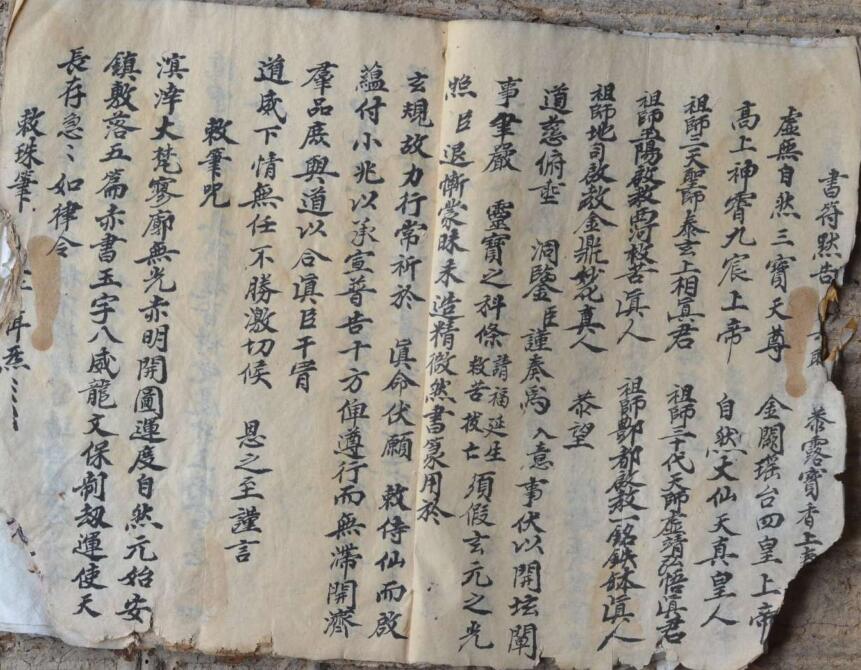 書符默告 恭露寶香上
虛無自然三寶天尊 金闕瑤台四皇上帝
高上神霄九宸上帝 自然大仙天真皇人
祖師三天聖師泰玄上相真君 祖師三十代天師虛靖弘悟真君
祖師玉陽啟教西河救苦真人 祖師酆都啟教一銘鉄缽真人
祖師地司啟教金鼎妙化真人 恭望
道慈俯垂 洞鑒臣謹奏為 入意事伏以開坛闡
事聿嚴 靈寶之科條請福延生救苦拔亡須假玄元之光
照臣退慚蒙昧未造精微然書篆用於
玄規故力行常祈於 真命伏願 敕侍仙而啟
蘊付小兆以承宣普告十方俾遵行而無滯開濟
羣品庶興道以合真臣干冒
道威下情無任不勝激切候 恩之至謹言
敕筆咒
溟涬大梵寥廓無光赤明開圖運度自然元始安
鎮敷落五篇赤書玉字八威龍文保制劫運使天
長存急〻如律令
敕珠筆